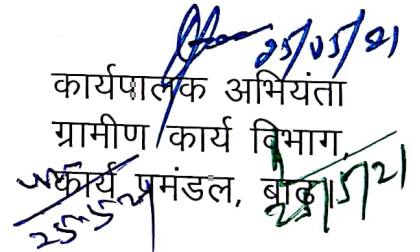 25/05/21
कार्यपालक अभियंता
ग्रामीण कार्य विभाग,
कार्य प्रमंडल, बाढ़।
25.5.21
25/5/21